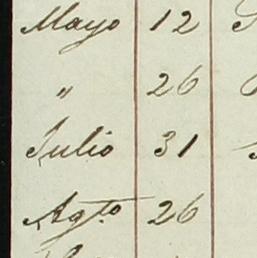 Mayo 12
" 26
Julio 31
Agto 26